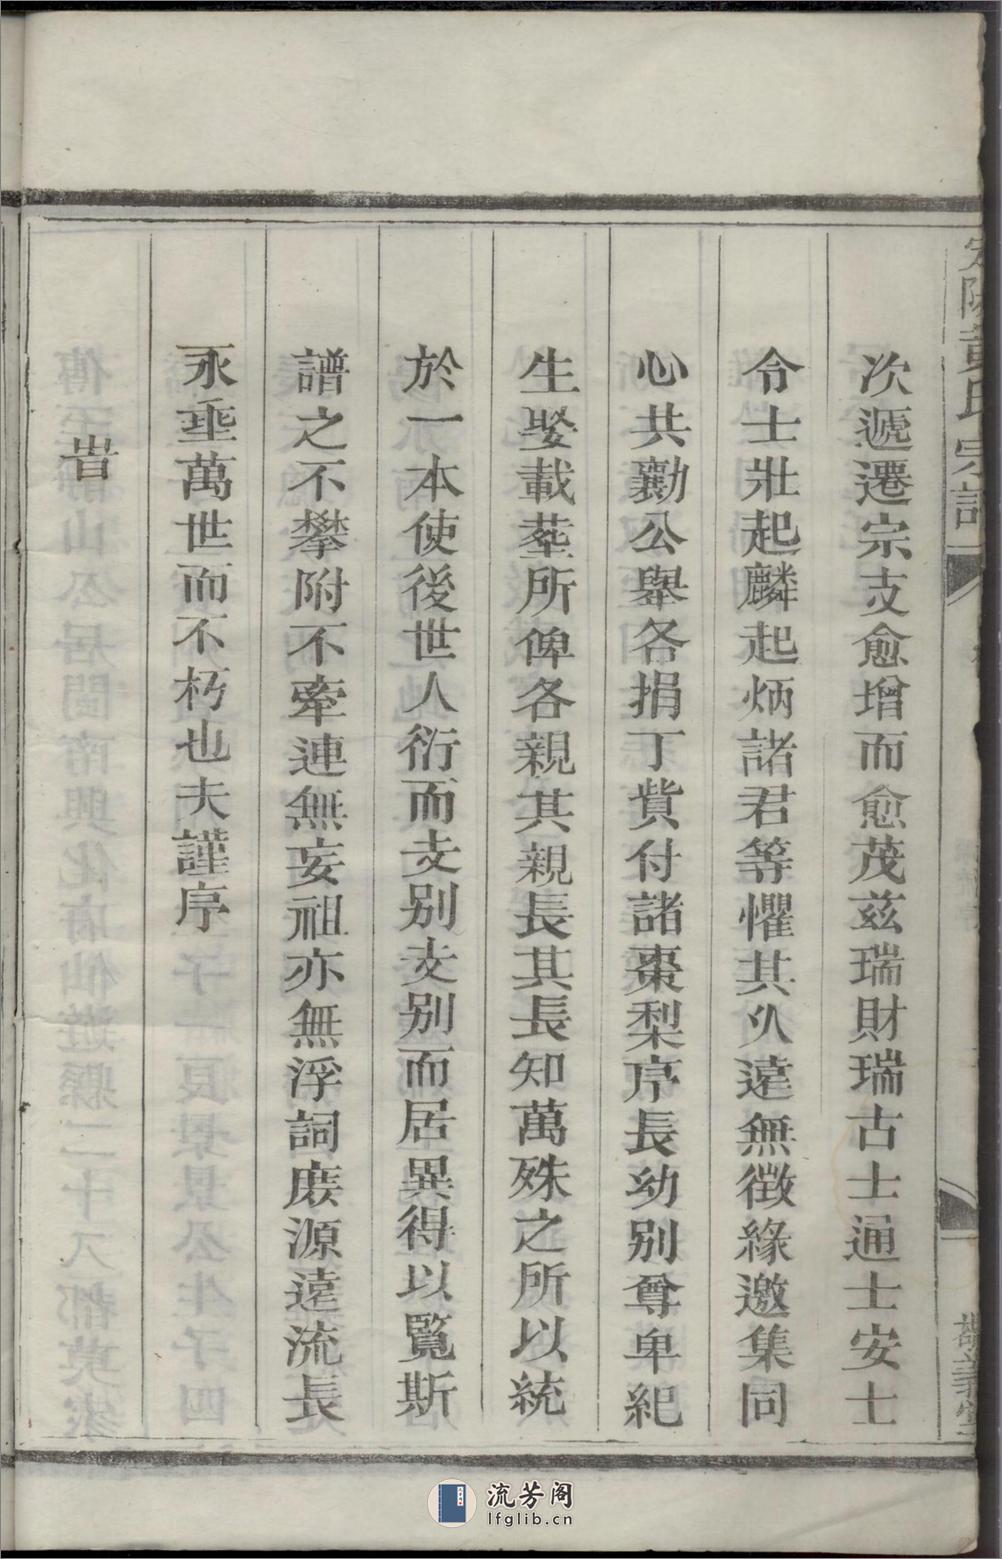 次遞遷宗支愈增而愈茂兹瑞財瑞古士通士安士
令士壯起麟起炳諸君等懼其久遠無徵緣邀集同
心共勷公舉各捐丁貲付諸棗梨序長幼别尊卑紀
生娶載塟所俾各親其親長其長知萬殊之所以統
於一本使後世人衍而支别支别而居異得以覧斯
譜之不攀附不牽連無妄祖亦無浮詞庶源遠流長
永垂萬世而不朽也夫謹序
旹
黄氏宗譜
流芳阁
lfglib.cn